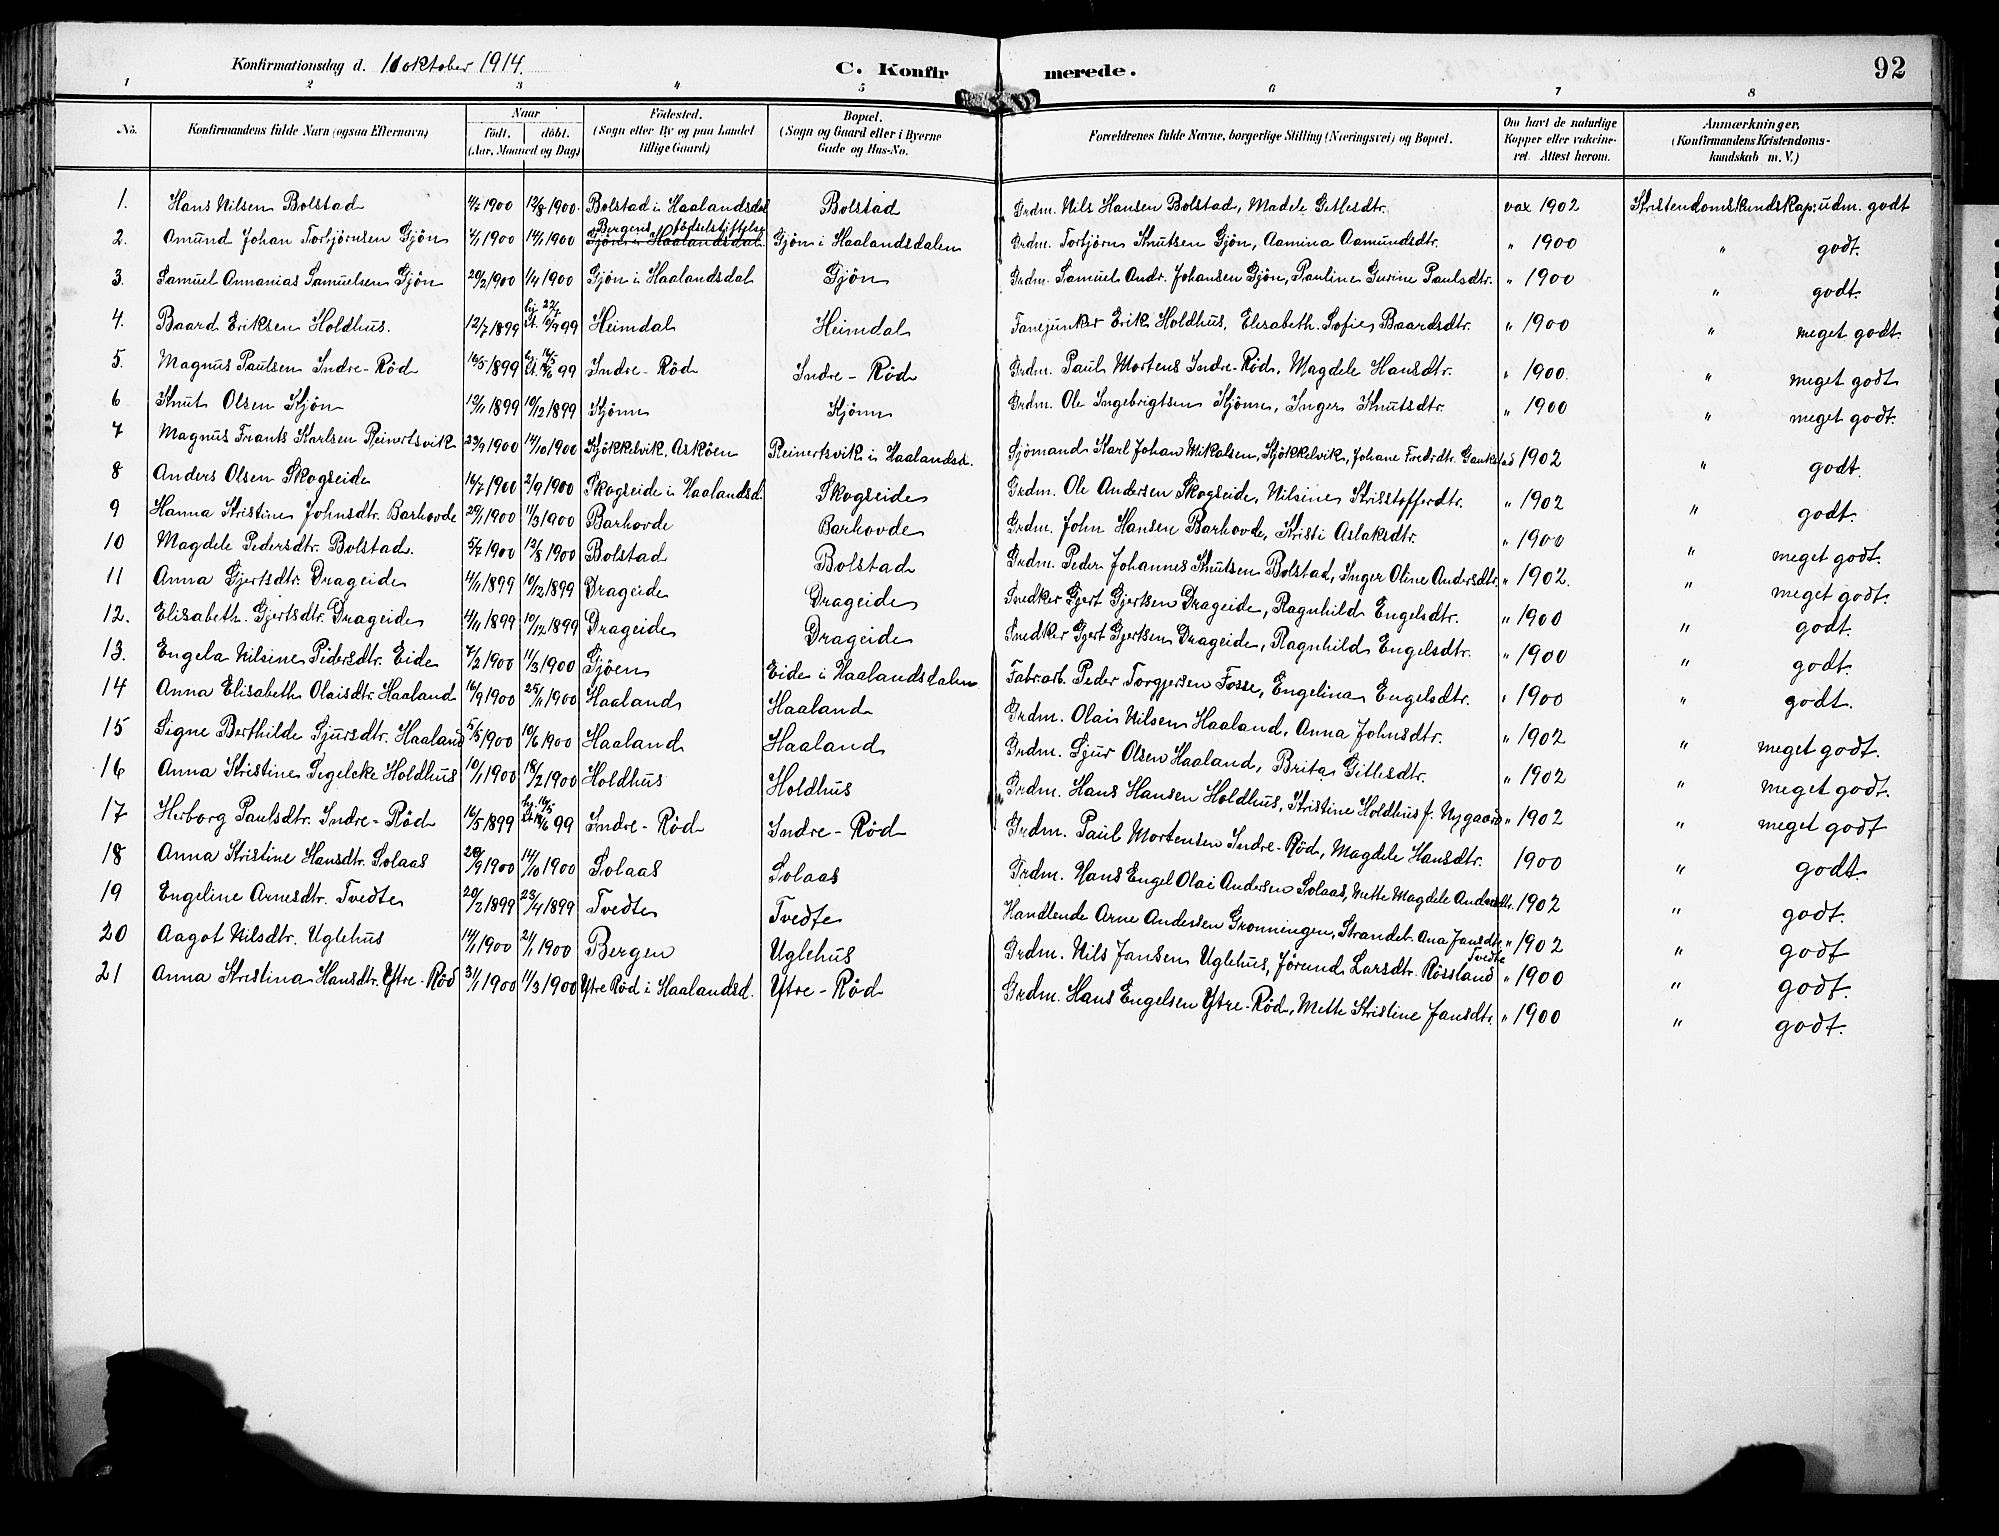 Konfirmationsdag d. 11 oktober 1914. C. Konfirmerede. 92
1 2 3 4 5 6 7 8
No. Konfirmandens fulde Navn (ogsaa Efternavn) Naar født. døbt. (Aar, Maaned og Dag) Fødested. (Sogn eller By og paa Landet tillige Gaard) Bopæl. (Sogn og Gaard eller i Byerne Gade og Hus-No. Forældrenes fulde Navne, borgerlige Stilling (Næringsvei) og Bopæl. Om havt de naturlige Kopper eller vakcineret. Attest herom. Anmærkninger, (Konfirmandens Kristendomskundskab m. V.)
1. Hans Nilsen Bolstad 4/7 1900 12/8 1900. Bolstad i Haalandsdal Bolstad Grdm. Nils Hansen Bolstad, Madele Gitlesdtr. vax 1902 Kristendomskundskap: udm. godt
2. Amund Johan Torbjörnsen Gjön 4/1 1900 14/1 1900 Bergens födselsstiftelse Gjön i Haalandsdal. Gjön i Haalandsdalen Grdm. Torbjörn Knutsen Gjön, Aamina Aamundsdtr. " 1900 " godt.
3. Samuel Annanias Samuelsen Gjön 20/2 1900 1/4 1900 Gjön i Haalandsdal Gjön Grdm. Samuel Andr. Johansen Gjön, Pauline Gurine Paulsdtr. " 1900 " godt.
4. Baard Eriksen Holdhus. 12/7 1899 hj. 22/7 st. 10/9 99 Heimdal Heimdal Fanejunker Erik Holdhus, Elisabeth Sofie Baardsdtr. " 1900 " meget godt.
5. Magnus Paulsen Indre-Röd 16/5 1899 hj. 16/5 st. 18/6 99 Indre-Röd Indre-Röd Grdm. Paul Mortens Indre-Röd, Magdele Hansdtr. " 1900. " meget godt
6 Knut Olsen Kjön 12/11 1899 10/12 1899 Kjönn Kjönn Grdm. Ole Ingebrigtsen Kjönn, Inger Knutsdtr. " 1900 " meget godt.
7 Magnus Frants Karlsen Reinertsvik 23/9 1900 14/10 1900 Kjökkelvik. Asköen Reinertsvik i Haalandsd. Sjömand Karl Johan Mikalsen, Kjökkelvik, Johane Fredr.dtr. " 1902 " godt.
8 Anders Olsen Skogseide 16/7 1900 2/9 1900 Skogseide i Haalandsd. Skogseide Grdm. Ole Andersen Skogseide, Nilsine Kristofferdtr. " 1902 " godt.
9 Hanna Kristine Johnsdtr. Barhovde 29/1 1900 11/3 1900 Barhovde Barhovde Grdm. John Hansen Barhovde, Kristi Aslaksdtr. " 1900 " meget godt.
10 Magdele Pedersdtr. Bolstad. 5/7 1900 12/8 1900 Bolstad Bolstad Grdm. Peder Johannes Knutsen Bolstad, Inger Oline Andersdtr. " 1902. " meget godt.
11 Anna Gjertsdtr. Drageide 14/11 1899 10/12 1899 Drageide Drageide Snedker Gjert Gjertsen Drageide, Ragnhild Engelsdtr. " 1900 " godt.
12. Elisabeth Gjertsdtr. Drageide 14/11 1899 10/12 1899 Drageide Drageide Snedker Gjert Gjertsen Drageide, Ragnhild Engelsdtr. " 1900 " godt.
13. Engela Nilsine Pedersdtr. Eide 7/2 1900 11/3 1900 Gjöen Eide i Haalandsdalen Fabr.arb. Peder Torgjersen Fosse, Engelina Engelsdtr. " 1900 " godt.
14 Anna Elisabeth Olaisdtr. Haaland 16/9 1900 25/11 1900 Haaland Haaland Grdm. Olai Nilsen Haaland, Anna Johnsdtr. " 1902 " meget godt.
15 Signe Berthilde Sjursdtr. Haaland 5/5 1900 10/6 1900 Haaland Haaland Grdm. Sjur Olsen Haaland, Brita Gitlesdtr. " 1902 " meget godt.
16 Anna Kristine Segelcke Holdhus 10/1 1900 18/2 1900 Holdhus Holdhus Grdm. Hans Hansen Holdhus, Kristine Holdhus f. Nygaard " 1902 " meget godt
17 Herborg Paulsdtr. Indre-Röd 16/5 1899 hj. 16/5 st. 18/6 99 Indre-Röd Indre-Röd Grdm. Paul Mortensen Indre-Röd, Magdele Hansdtr. 1900 " godt.
18 Anna Kristine Hansdtr. Solaas 20/9 1900 14/10 1900 Solaas Solaas Grdm. Hans Engel Olai Andersen Solaas, Mette Magdele Andersdtr. 1902 " godt.
19 Engeline Arnesdtr. Tvedte 20/2 1899 23/4 1899 Tvedte Tvedte Handlende Arne Andersen Gronningen, Strandeb. Ana Jansdtr. Tvedte " 1902 " godt
20 Aagot Nilsdtr. Uglehus 14/1 1900 21/1 1900 Bergen Uglehus Grdm. Nils Jansen Uglehus, Jørund Larsdtr. Rössland " 1900 " godt.
21 Anna Kristina Hansdtr. Ytre-Röd 31/1 1900 11/3 1900 Ytre Röd i Haalandsd. Ytre-Röd Grdm. Hans Engelsen Ytre-Röd, Mette Kristine Jansdtr. " 1900 " godt.